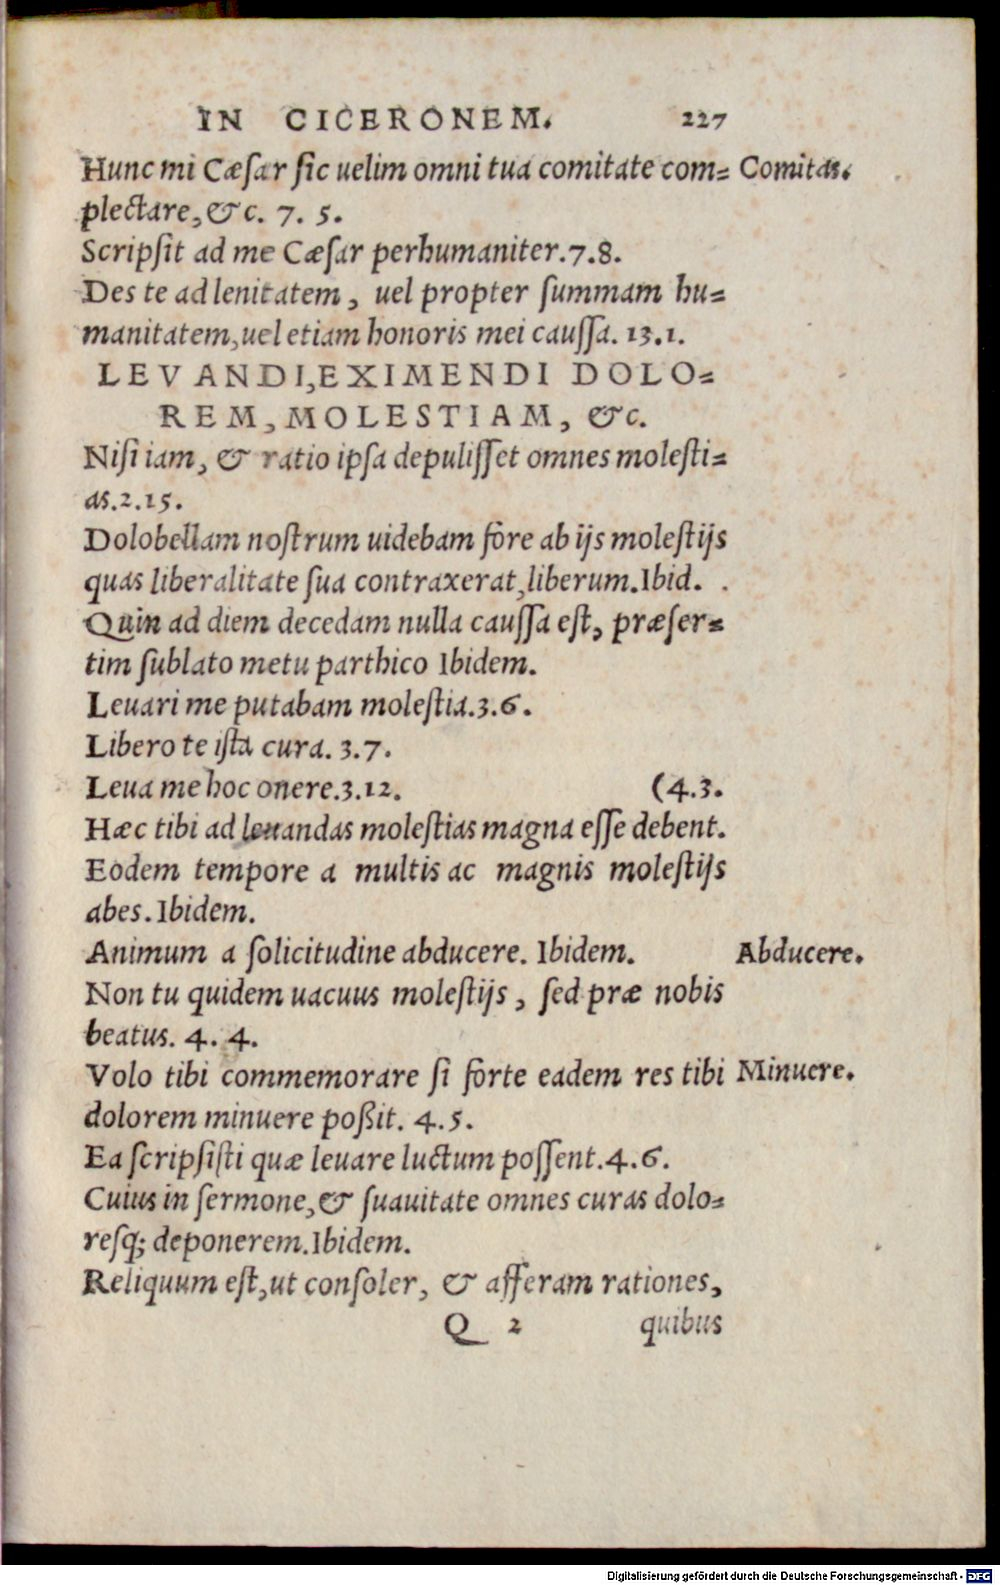 IN CICERONEM. 227
Hunc mi Cæſar ſic uelim omni tua comitate com= Comitas.
plectare, & c. 7. 5.
Scripſit ad me Cæſar perhumaniter.7.8.
Des te ad lenitatem, uel propter ſummam hu=
manitatem,uel etiam honoris mei cauſſa. 13.1.
LEVANDI,EXIMENDI DOLO=
REM, MOLESTIAM, &c.
Niſi iam, & ratio ipſa depuliſſet omnes moleſti=
as.2.15.
Dolobellam noſtrum uidebam fore ab ijs moleſtijs
quas liberalitate ſua contraxerat,liberum.Ibid.
Quin ad diem decedam nulla cauſſa eſt, præſer=
tim ſublato metu parthico Ibidem.
Leuari me putabam moleſtia.3.6.
Libero te iſta cura. 3.7.
Leua me hoc onere.3.12. (4.3.
Hæc tibi ad leuandas moleſtias magna eſſe debent.
Eodem tempore a multis ac magnis moleſtijs
abes.Ibidem.
Animum a ſolicitudine abducere. Ibidem. Abducere.
Non tu quidem uacuus moleſtijs, ſed præ nobis
beatus. 4. 4.
Volo tibi commemorare ſi forte eadem res tibi Minuere.
dolorem minuere poßit. 4.5.
Ea ſcripſiſti quæ leuare luctum poſſent.4.6.
Cuius in ſermone,& ſuauitate omnes curas dolo=
reſq; deponerem.Ibidem.
Reliquum eſt,ut conſoler, & afferam rationes,
Q 2 quibus
Digitalisierung gefördert durch die Deutsche Forschungsgemeinschaft - DFG